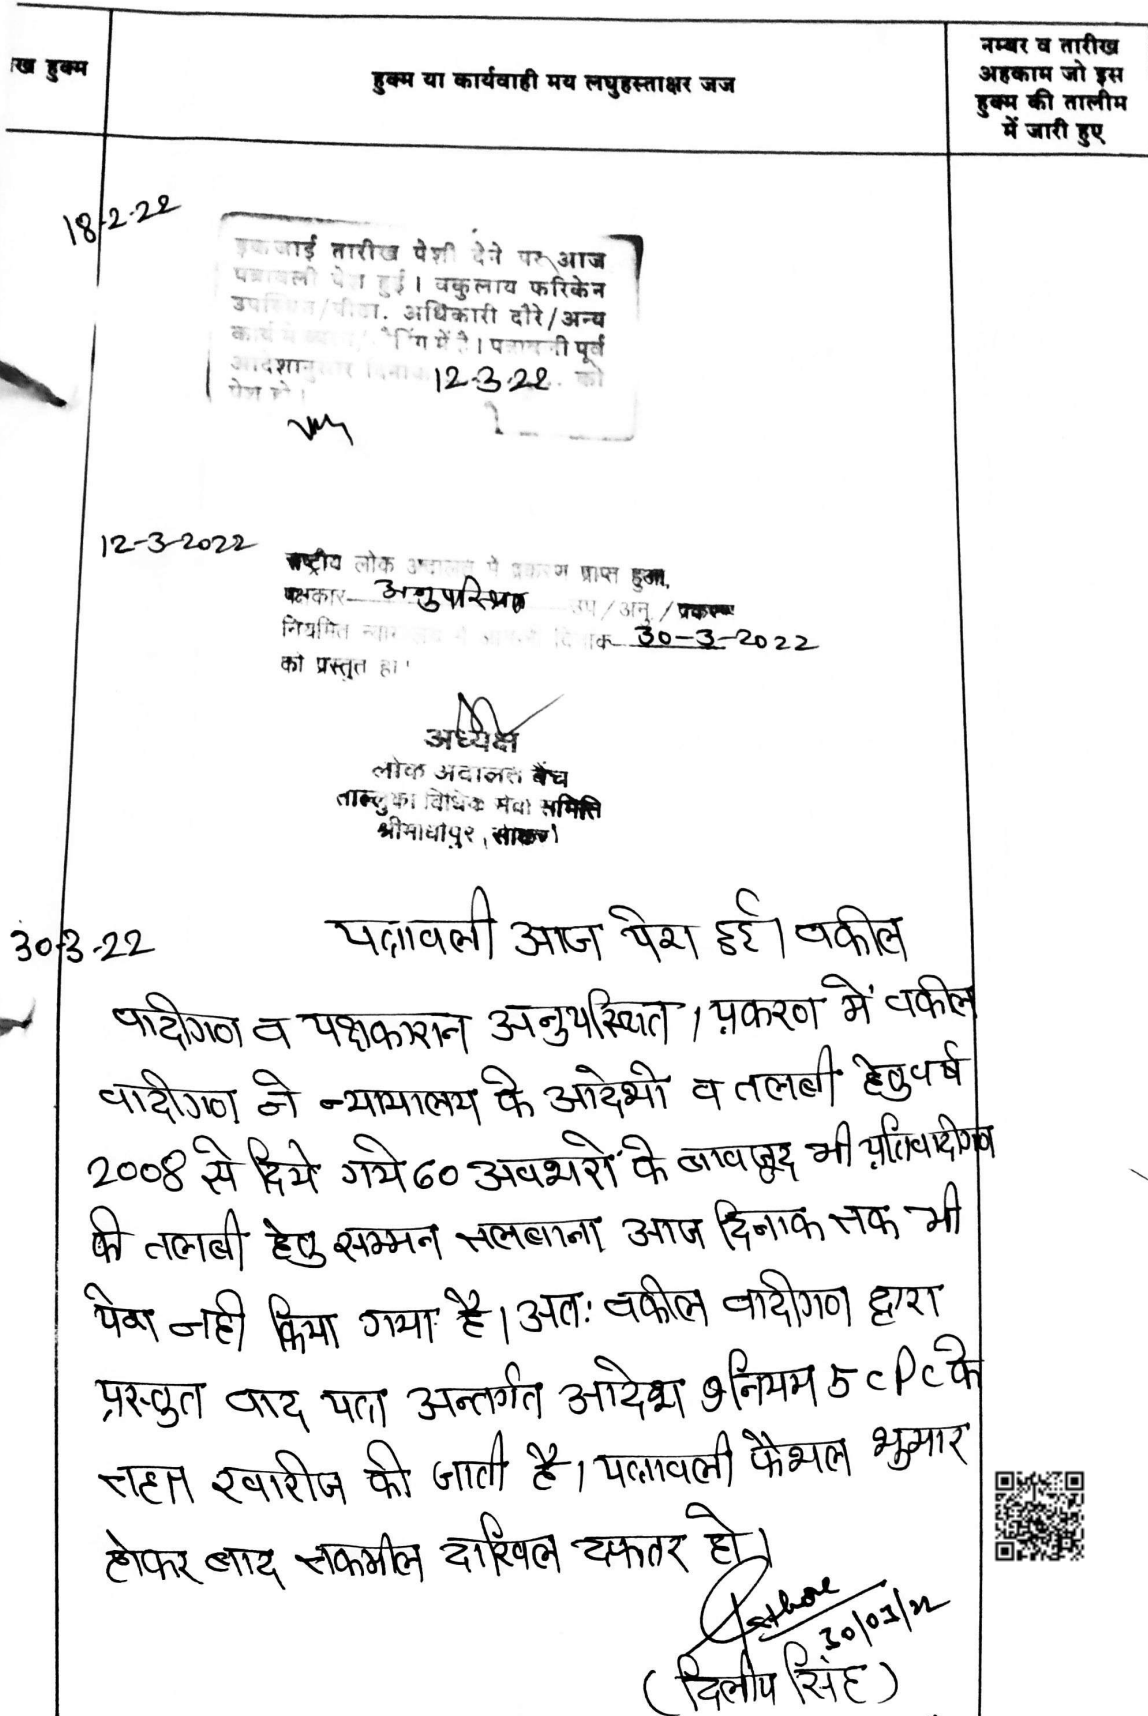 ख हुक्म
हुक्म या कार्यवाही मय लघुहस्ताक्षर जज
नम्बर व तारीख
अहकाम जो इस
हुक्म की तालीम
में जारी हुए
18-2-22
इकजाई तारीख पेशी देने पर आज
पत्रावली पेश हुई। वकुलाय फरिकेन
उपस्थित/पीठा. अधिकारी दौरे/अन्य
कार्य में में है। पत्रावली पूर्व
आदेशानुसार दिनांक 12-3-22 को
पेश हो।
12-3-2022
राष्ट्रीय लोक अदालत में प्रकरण प्राप्त हुआ,
पक्षकार अनुपस्थित उप/अनु./प्रकरण
नियमित न्यायालय में दिनांक 30-3-2022
को प्रस्तुत हो।
अध्यक्ष
लोक अदालत बैंच
ताल्लुका विधिक सेवा समिति
श्रीमाधोपुर, सीकर
30-3-22 पत्रावली आज पेश हुई। वकील
वादीगण व पक्षकारान अनुपस्थित। प्रकरण में वकील
वादीगण ने न्यायालय के आदेशो व तलबी हेतु वर्ष
2008 से दिये गये 60 अवसरों के बावजूद भी प्रतिवादीगण
की तलबी हेतु सम्मन तलबाना आज दिनाक तक भी
पेश नही किया गया है। अतः वकील वादीगण द्वारा
प्रस्तुत वाद पत्र अन्तर्गत आदेश 9 नियम 5 CPC के
तहत खारीज की जाती है। पत्रावली फैशल शुमार
होकर बाद तकमील दाखिल दफ्तर हो।
30/03/22
(दिलीप सिंह)